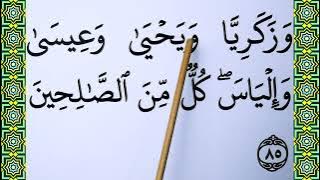 وَزَكَرِيَّا وَيَحْيَىٰ وَعِيسَىٰ
وَإِلْيَاسَ ۖ كُلٌّ مِّنَ ٱلصَّـٰلِحِينَ
٨٥